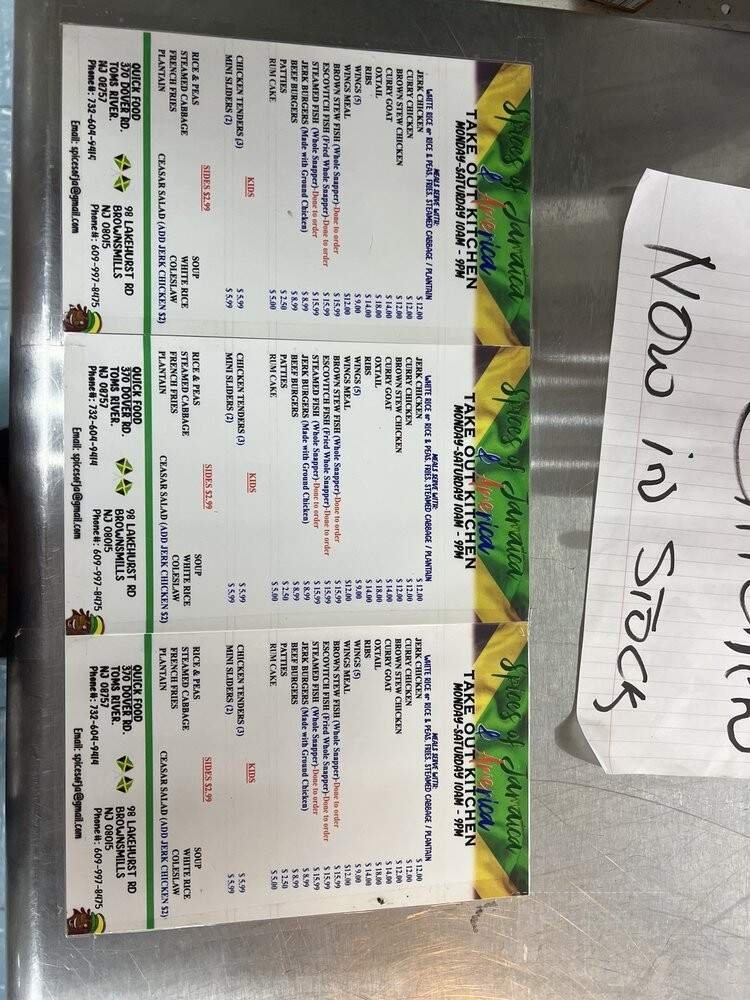 Spices of Jamaica
& America
TAKE OUT KITCHEN
MONDAY-SATURDAY 10AM - 9PM
MEALS SERVE WITH:
WHITE RICE or RICE & PEAS, FRIES, STEAMED CABBAGE / PLANTAIN
JERK CHICKEN $ 12.00
CURRY CHICKEN $ 12.00
BROWN STEW CHICKEN $ 12.00
CURRY GOAT $ 14.00
OXTAIL $ 18.00
RIBS $ 14.00
WINGS (5) $ 9.00
WINGS MEAL $12.00
BROWN STEW FISH (Whole Snapper)-Done to order $ 15.99
ESCOVITCH FISH (Fried Whole Snapper)-Done to order $ 15.99
STEAMED FISH (Whole Snapper)-Done to order $ 15.99
JERK BURGERS (Made with Ground Chicken) $ 8.99
BEEF BURGERS $ 8.99
PATTIES $ 2.50
RUM CAKE $ 5.00
KIDS
CHICKEN TENDERS (3) $ 5.99
MINI SLIDERS (2) $ 5.99
SIDES $2.99
RICE & PEAS SOUP
STEAMED CABBAGE WHITE RICE
FRENCH FRIES COLESLAW
PLANTAIN CEASAR SALAD (ADD JERK CHICKEN $2)
QUICK FOOD
370 DOVER RD.
TOMS RIVER.
NJ 08757
Phone#: 732-604-9414
98 LAKEHURST RD
BROWNSMILLS
NJ 08015
Phone#: 609-997-8475
Email: spicesofja@gmail.com
Spices of Jamaica
& America
TAKE OUT KITCHEN
MONDAY-SATURDAY 10AM - 9PM
MEALS SERVE WITH:
WHITE RICE or RICE & PEAS, FRIES, STEAMED CABBAGE / PLANTAIN
JERK CHICKEN $ 12.00
CURRY CHICKEN $ 12.00
BROWN STEW CHICKEN $ 12.00
CURRY GOAT $ 14.00
OXTAIL $ 18.00
RIBS $ 14.00
WINGS (5) $ 9.00
WINGS MEAL $12.00
BROWN STEW FISH (Whole Snapper)-Done to order $ 15.99
ESCOVITCH FISH (Fried Whole Snapper)-Done to order $ 15.99
STEAMED FISH (Whole Snapper)-Done to order $ 15.99
JERK BURGERS (Made with Ground Chicken) $ 8.99
BEEF BURGERS $ 8.99
PATTIES $ 2.50
RUM CAKE $ 5.00
KIDS
CHICKEN TENDERS (3) $ 5.99
MINI SLIDERS (2) $ 5.99
SIDES $2.99
RICE & PEAS SOUP
STEAMED CABBAGE WHITE RICE
FRENCH FRIES COLESLAW
PLANTAIN CEASAR SALAD (ADD JERK CHICKEN $2)
QUICK FOOD
370 DOVER RD.
TOMS RIVER.
NJ 08757
Phone#: 732-604-9414
98 LAKEHURST RD
BROWNSMILLS
NJ 08015
Phone#: 609-997-8475
Email: spicesofja@gmail.com
Spices of Jamaica
& America
TAKE OUT KITCHEN
MONDAY-SATURDAY 10AM - 9PM
MEALS SERVE WITH:
WHITE RICE or RICE & PEAS, FRIES, STEAMED CABBAGE / PLANTAIN
JERK CHICKEN $ 12.00
CURRY CHICKEN $ 12.00
BROWN STEW CHICKEN $ 12.00
CURRY GOAT $ 14.00
OXTAIL $ 18.00
RIBS $ 14.00
WINGS (5) $ 9.00
WINGS MEAL $12.00
BROWN STEW FISH (Whole Snapper)-Done to order $ 15.99
ESCOVITCH FISH (Fried Whole Snapper)-Done to order $ 15.99
STEAMED FISH (Whole Snapper)-Done to order $ 15.99
JERK BURGERS (Made with Ground Chicken) $ 8.99
BEEF BURGERS $ 8.99
PATTIES $ 2.50
RUM CAKE $ 5.00
KIDS
CHICKEN TENDERS (3) $ 5.99
MINI SLIDERS (2) $ 5.99
SIDES $2.99
RICE & PEAS SOUP
STEAMED CABBAGE WHITE RICE
FRENCH FRIES COLESLAW
PLANTAIN CEASAR SALAD (ADD JERK CHICKEN $2)
QUICK FOOD
370 DOVER RD.
TOMS RIVER.
NJ 08757
Phone#: 732-604-9414
98 LAKEHURST RD
BROWNSMILLS
NJ 08015
Phone#: 609-997-8475
Email: spicesofja@gmail.com
Now in Stock